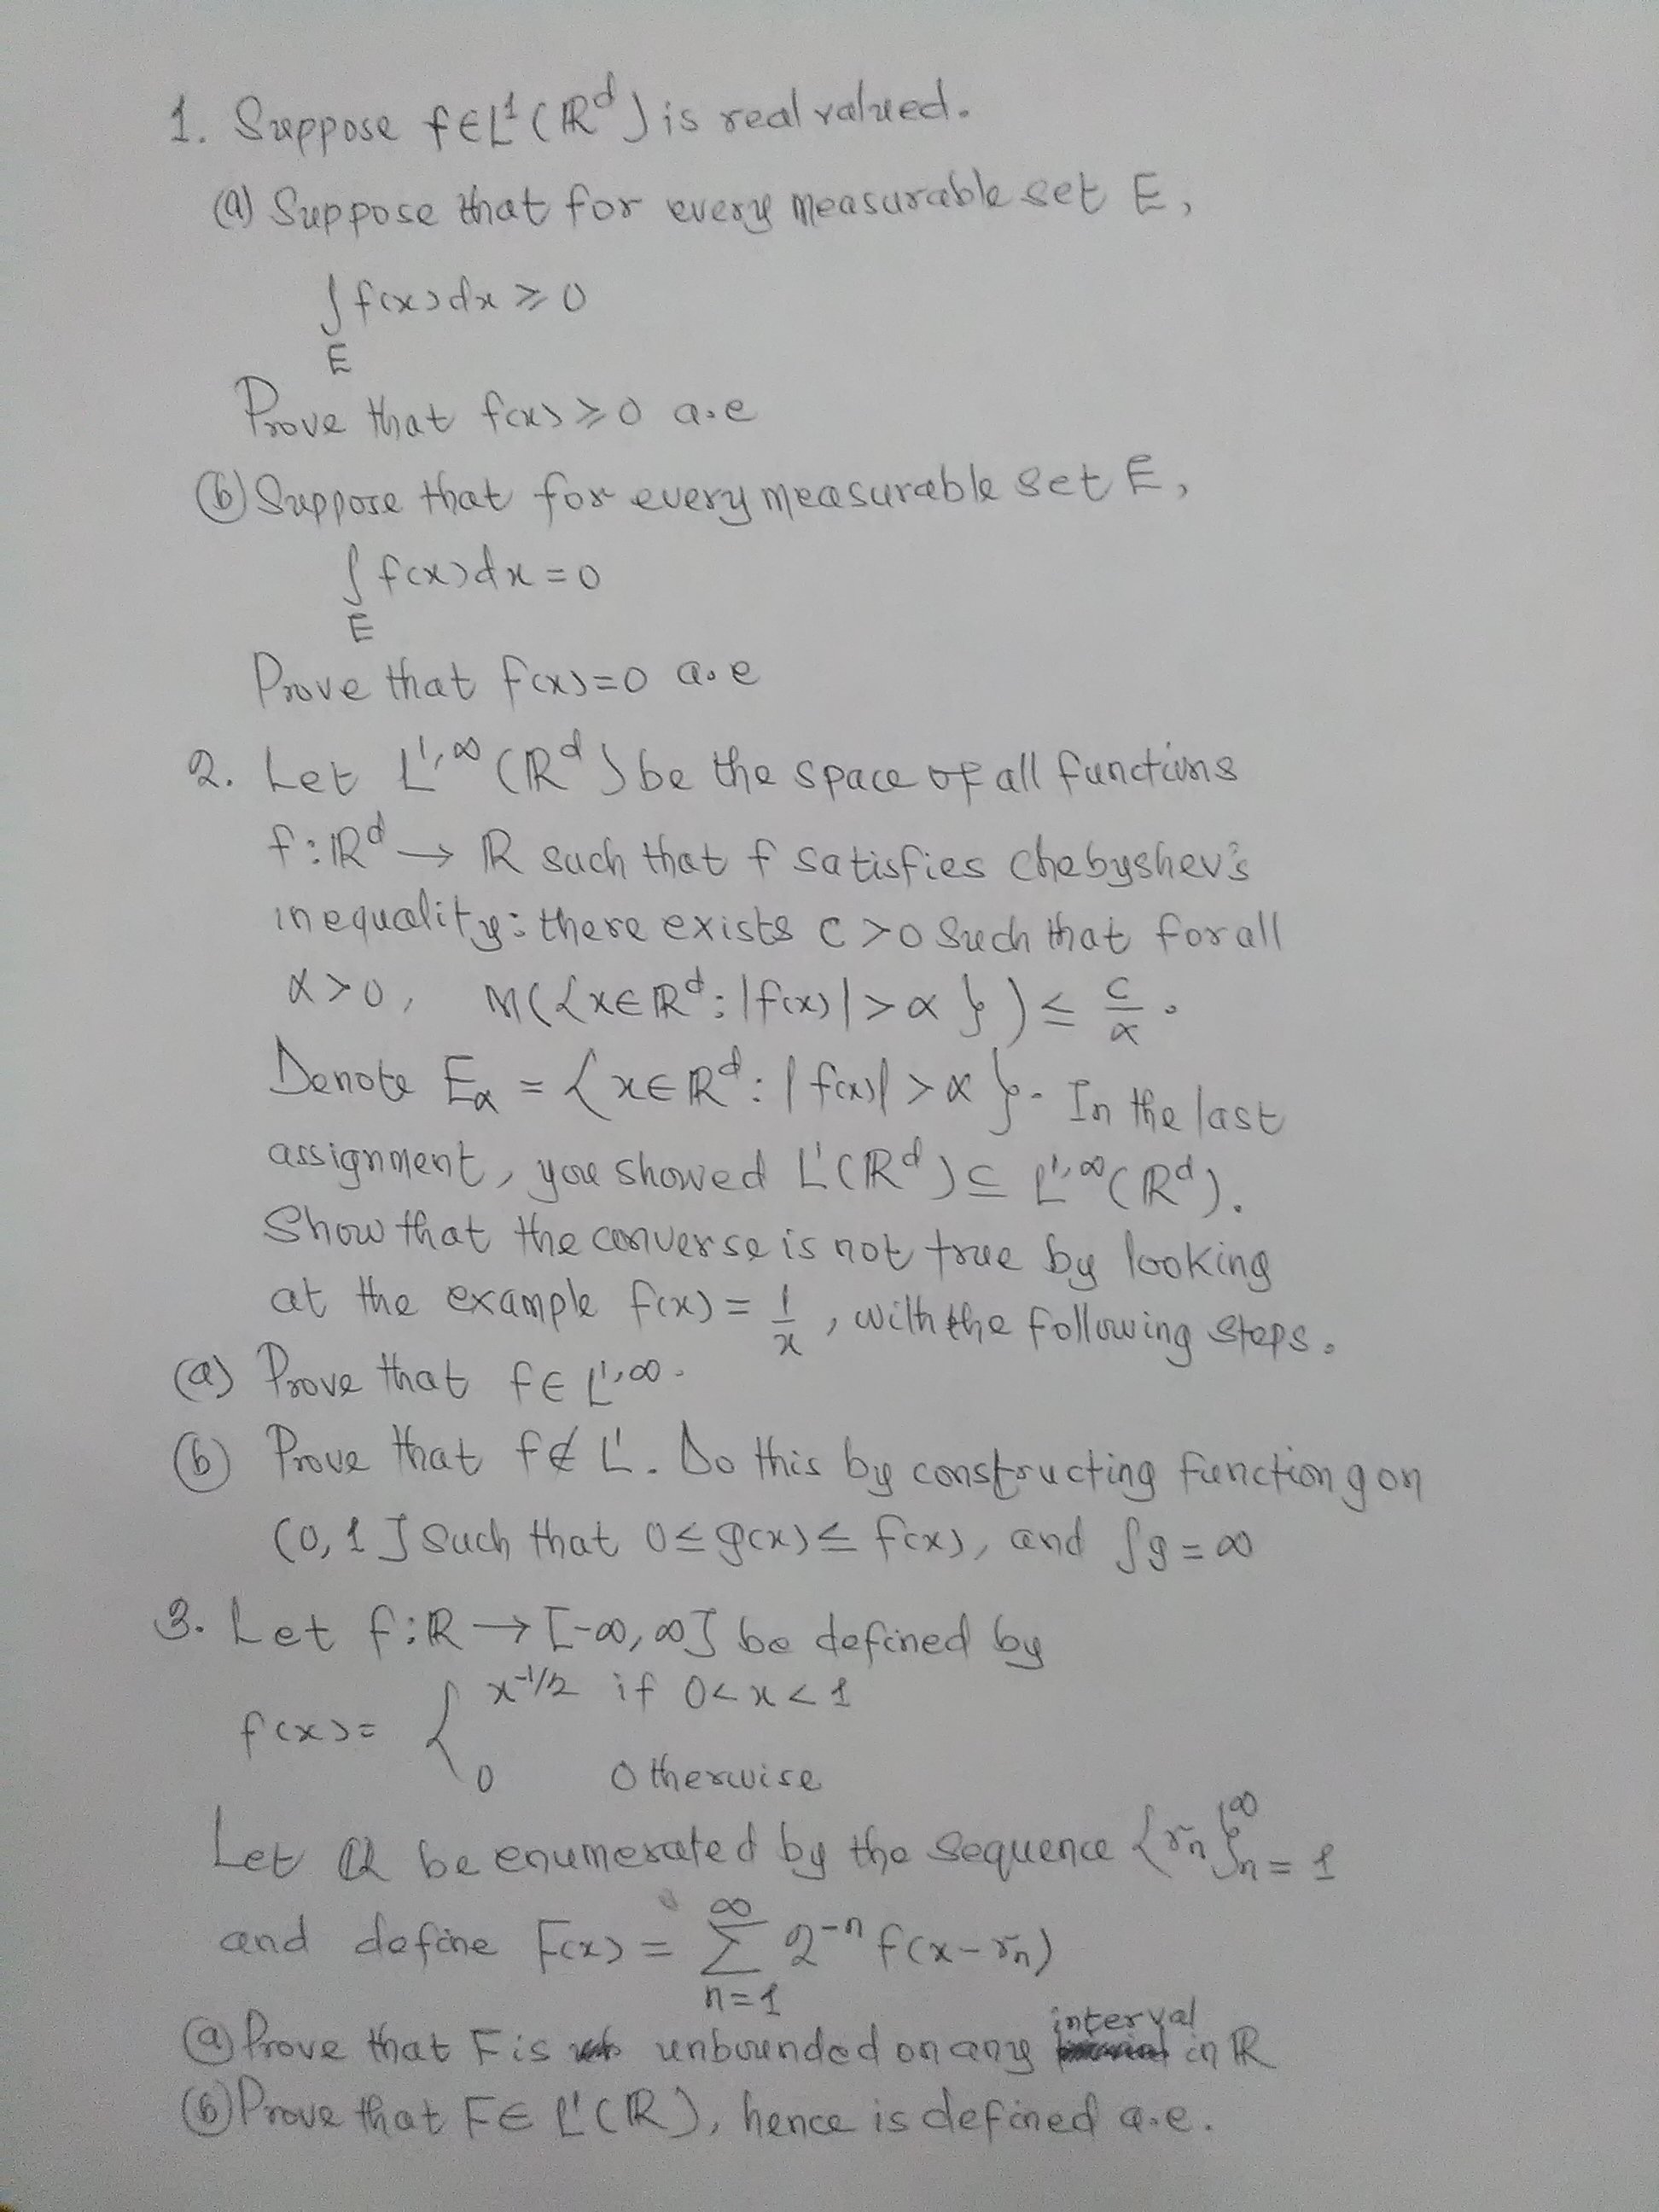 1. Suppose f∈L¹(ℝᵈ) is real valued.
(a) Suppose that for every measurable set E,
∫ f(x)dx ≥ 0
E
Prove that f(x) ≥ 0 a.e
(b) Suppose that for every measurable set E,
∫ f(x)dx = 0
E
Prove that f(x)=0 a.e
2. Let L^{1,∞}(ℝᵈ) be the space of all functions
f: ℝᵈ → ℝ such that f satisfies Chebyshev's
inequality: there exists c>0 such that for all
α>0, m({x∈ℝᵈ: |f(x)|>α}) ≤ c/α.
Denote E_α = {x∈ℝᵈ: |f(x)|>α}. In the last
assignment, you showed L¹(ℝᵈ) ⊆ L^{1,∞}(ℝᵈ).
Show that the converse is not true by looking
at the example f(x) = 1/x, with the following steps.
(a) Prove that f∈ L^{1,∞}.
(b) Prove that f∉ L¹. Do this by constructing function g on
(0,1] such that 0≤g(x)≤ f(x), and ∫g = ∞
3. Let f: ℝ → [-∞,∞] be defined by
f(x)= { x^{-1/2} if 0<x<1
0 Otherwise
Let ℚ be enumerated by the sequence {rₙ}_{n=1}^∞
and define F(x) = ∑_{n=1}^∞ 2⁻ⁿ f(x-rₙ)
(a) Prove that F is unbounded on any interval in ℝ
(b) Prove that F∈ L¹(ℝ), hence is defined a.e.